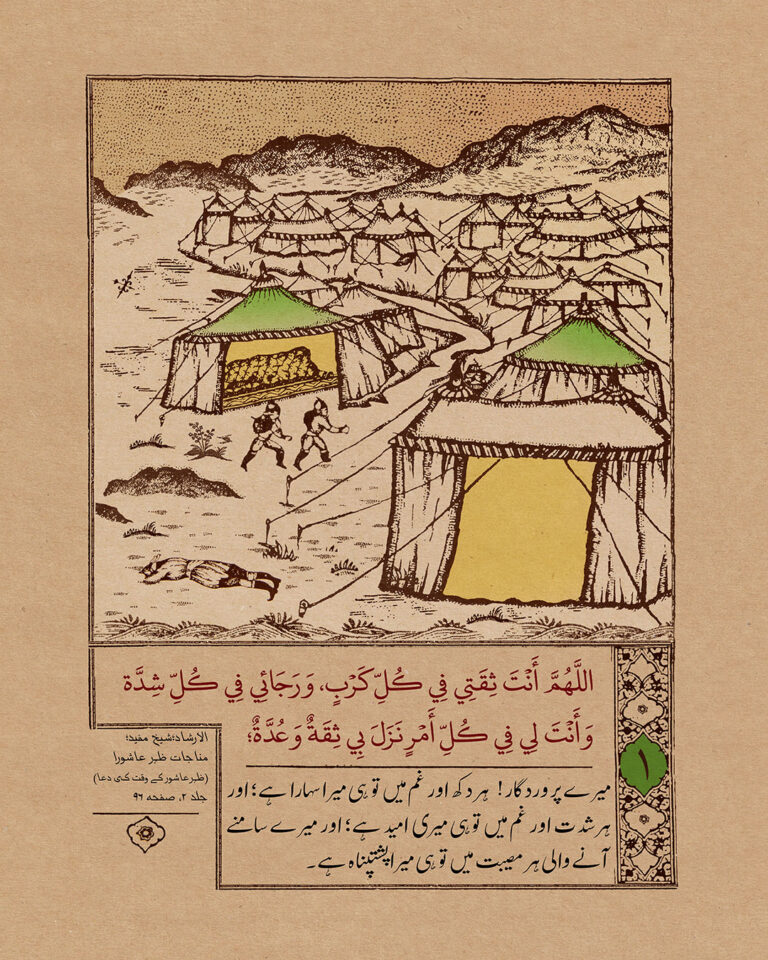 اللَّهُمَّ أَنْتَ ثِقَتِي فِي كُلِّ كَرْبٍ، وَرَجَائِي فِي كُلِّ شِدَّة
وَأَنْتَ لِي فِي كُلِّ أَمْرٍ نَزَلَ بِي ثِقَةٌ وَعُدَّةٌ؛
میرے پروردگار! ہر دکھ اور غم میں تو ہی میرا سہارا ہے؛ اور
ہر شدت اور غم میں تو ہی میری امید ہے؛ اور میرے سامنے
آنے والی ہر مصیبت میں تو ہی میرا پشتپناہ ہے۔
۱
الارشاد؛ شیخ مفید؛
مناجات ظہر عاشورا
(ظہر عاشور کے وقت کی دعا)
جلد ۲، صفحه ۹۶